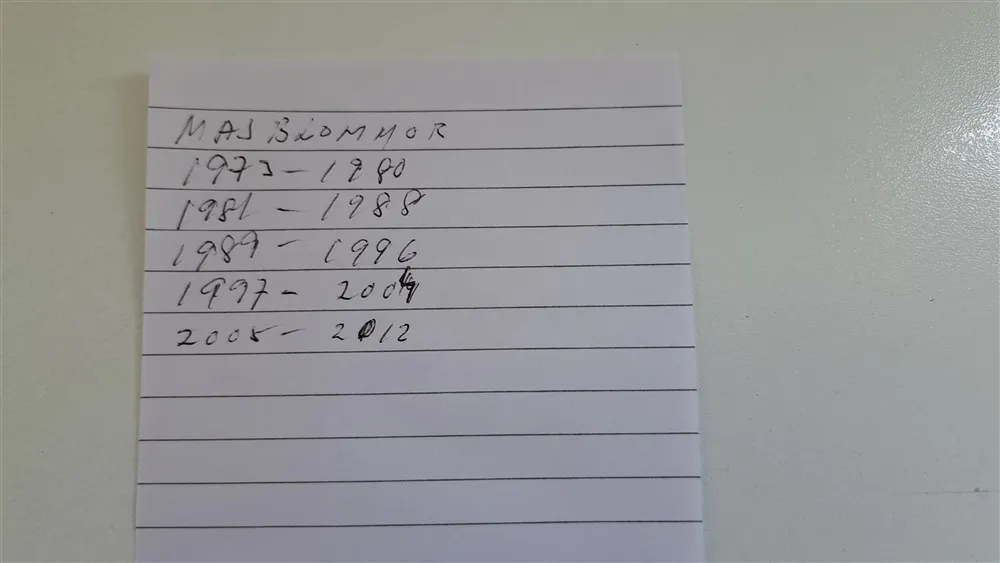 MAJBLOMMOR
1973 - 1980
1981 - 1988
1989 - 1996
1997 - 2004
2005 - 2012